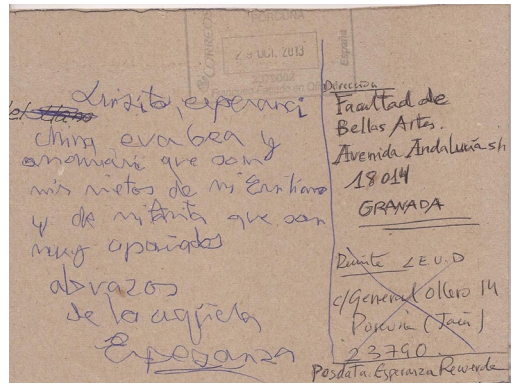 PORCUNA
CORREOS
España
23 OCT. 2013
Luisito, esperanci
china evabea y
anamari que son
mis nietos de mi Emiliano
y de mi tanita que son
muy apañados
abrazos
de la agüela
Esperanza
Dirección
Facultad de
Bellas Artes.
Avenida Andalucía sn
18014
GRANADA
Remite L E U D
c/General Ollero 14
Porcuna (Jaén)
23790
Posdata. Esperanza Recuerda